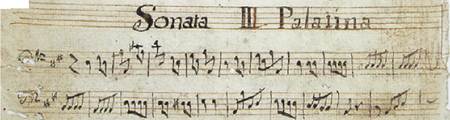 Sonata III Palatina